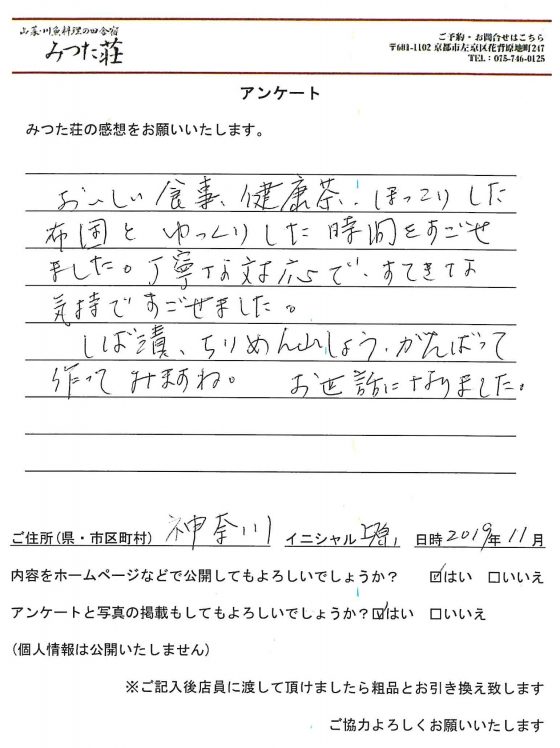 山菜・川魚料理の田舎宿
みつた荘
ご予約・お問合せはこちら
〒601-1102 京都市左京区花背原地町247
TEL：075-746-0125
アンケート
みつた荘の感想をお願いいたします。
おいしい食事、健康茶、ほっこりした
布団とゆっくりした時間をすごせ
ました。丁寧な対応で、すてきな
気持ですごせました。
しば漬、ちりめん山しょう、がんばって
作ってみますね。 お世話になりました。
ご住所(県・市区町村) 神奈川 イニシャル 日時 2019年 11月
内容をホームページなどで公開してもよろしいでしょうか？ ☑はい □いいえ
アンケートと写真の掲載もしてもよろしいでしょうか？☑はい □いいえ
(個人情報は公開いたしません)
※ご記入後店員に渡して頂けましたら粗品とお引き換え致します
ご協力よろしくお願いいたします